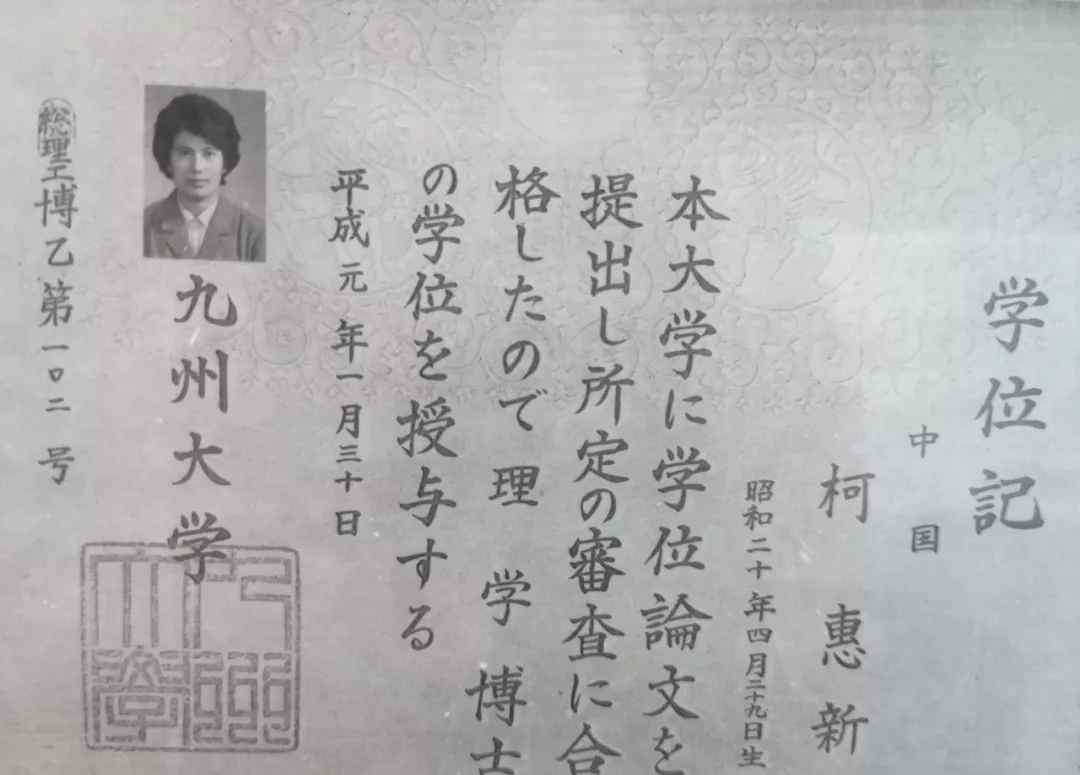 学位記
中国
柯惠新
昭和二十年四月二十九日生
本大学に学位論文を
提出し所定の審査に合
格したので理学博士
の学位を授与する
平成元年一月三十日
九州大学
総理工博乙第一〇二号